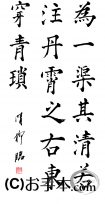 為一渠其清若
注丹霄之右東
穿青瑣
臨
(C)お手本.com